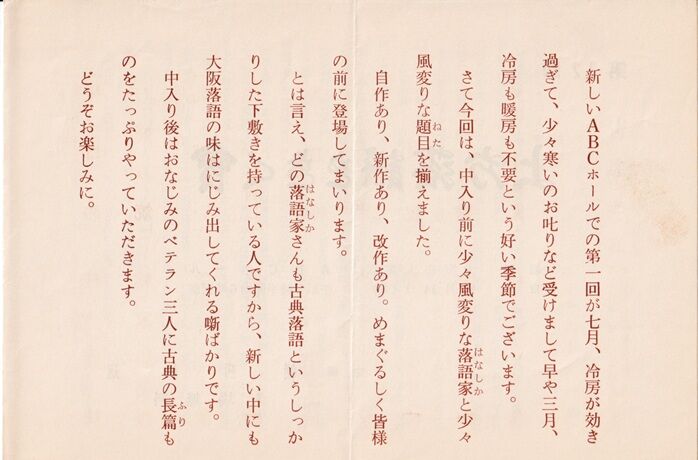 新しいABCホールでの第一回が七月、冷房が効き
過ぎて、少々寒いのお叱りなど受けまして早や三月、
冷房も暖房も不要という好い季節でございます。
さて今回は、中入り前に少々風変りな落語家と少々
はなしか
風変りな題目を揃えました。
ねた
自作あり、新作あり、改作あり。めまぐるしく皆様
の前に登場してまいります。
とは言え、どの落語家さんも古典落語というしっか
はなしか
りした下敷きを持っている人ですから、新しい中にも
大阪落語の味はにじみ出してくれる噺ばかりです。
中入り後はおなじみのベテラン三人に古典の長篇も
ふり
のをたっぷりやっていただきます。
どうぞお楽しみに。